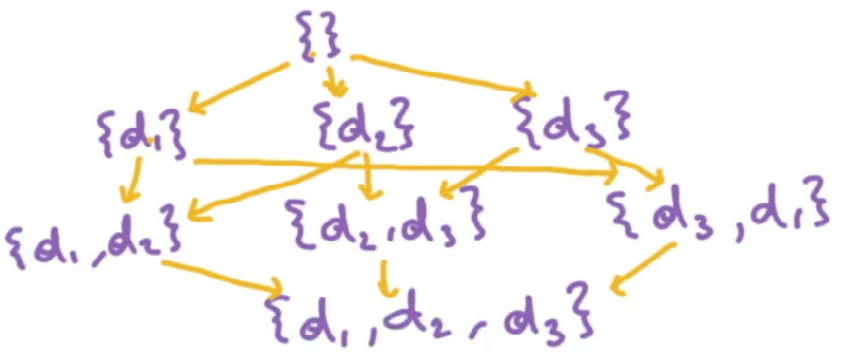 {}
{d₁} {d₂} {d₃}
{d₁,d₂} {d₂,d₃} {d₃,d₁}
{d₁,d₂,d₃}